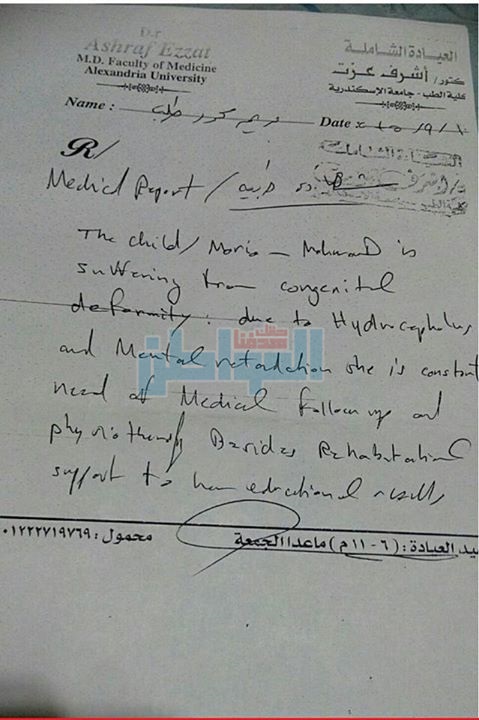 D.r
Ashraf Ezzat
M.D. Faculty of Medicine
Alexandria University
العيادة الشاملة
دكتور/ أشرف عزت
كلية الطب - جامعة الاسكندرية
Name :
Date
R/
Medical Report /
The child/ Mohamed is
suffering from congenital
deformity : due to Hydrocephalus
and Mental retardation she is constant
need of Medical Follow up and
physiotherapy Besides Rehabitational
support to educational results
مواعيد العيادة : (٦ - ١١ م) ماعدا الجمعة
محمول : ٠١٢٢٢٧١٩٧٦٩